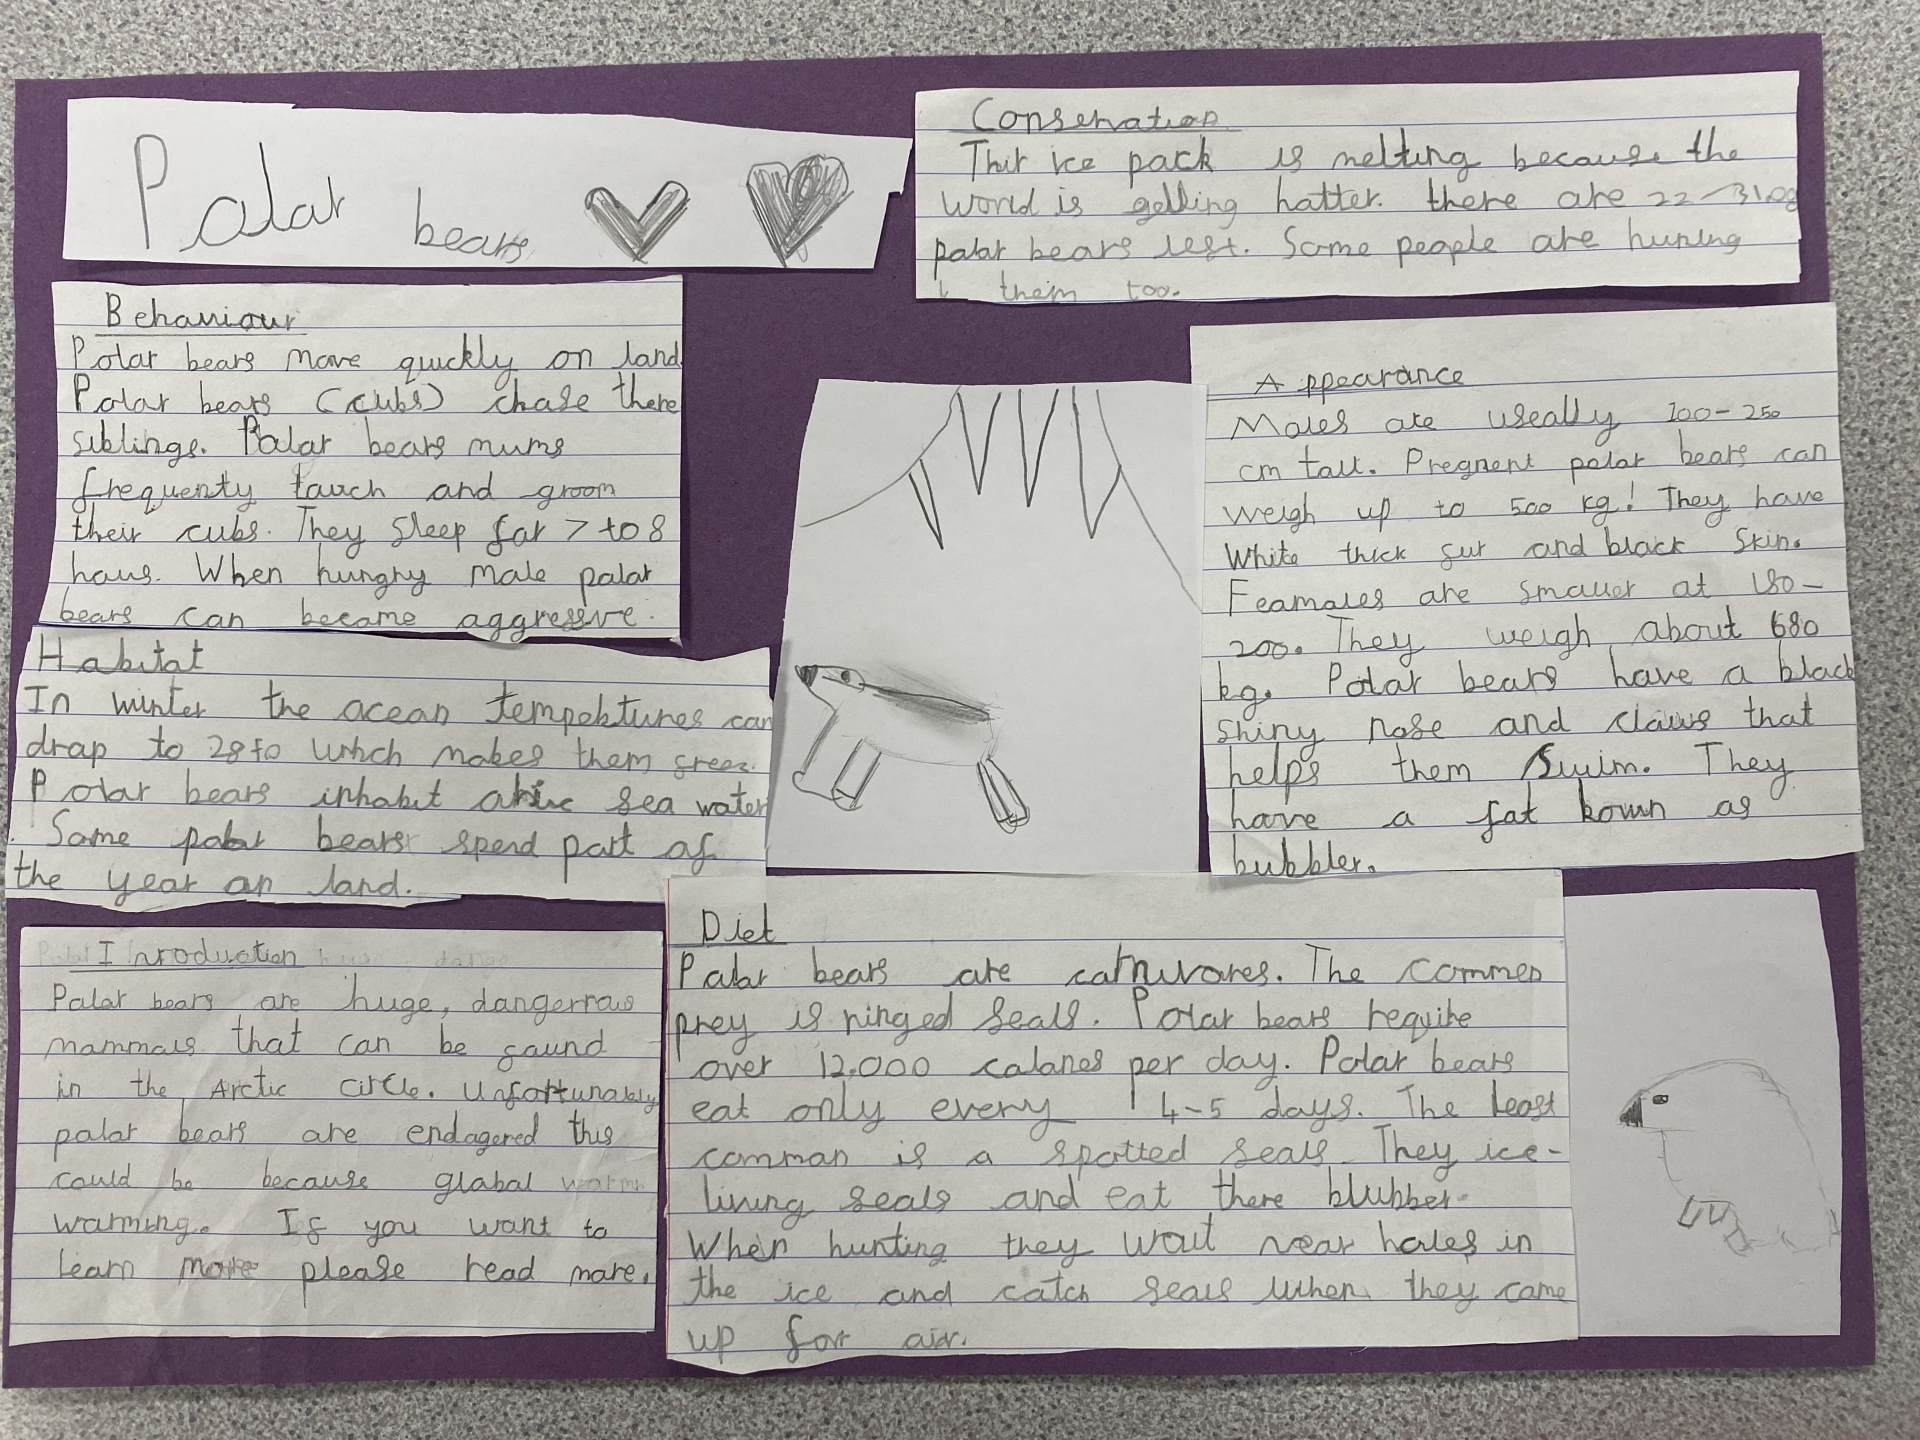 Polar bears
Conservation
Their ice pack is melting because the
world is getting hotter. there are 22-31,00
polar bears lest. Some people are huning
them too.
Behaviour
Polar bears move quickly on land.
Polar bears (cubs) chase there
siblings. Polar bears mums
frequenty touch and groom
their cubs. They sleep for 7 to 8
hous. When hungry male polar
bears can become aggressive.
Appearance
Males are useally 200-250
cm tall. Pregnent polar bears can
weigh up to 500 kg! They have
white thick fur and black skin.
Feamales are smaller at 180-
200. They weigh about 680
kg. Polar bears have a black
shiny nose and claws that
helps them swim. They
have a fat kown as
bubbler.
Habitat
In winter the ocean tempertures can
drop to 28 fo which makes them freez.
Polar bears inhabit artic sea water
. Some polar bears spend part of
the year on land.
Inroduction
Polar bears are huge, dangerrous
mammals that can be found
in the Arctic circle. Unfortunably
polar bears are endagered this
could be because global
warming. If you want to
learn more please read more.
Diet
Polar bears are carnivores. The commen
prey is ringed seals. Polar bears require
over 12,000 calories per day. Polar bears
eat only every 4-5 days. The least
comman is a spotted seals. They ice-
living seals and eat there blubber.
When hunting they wait near holes in
the ice and catch seals when they come
up for air.